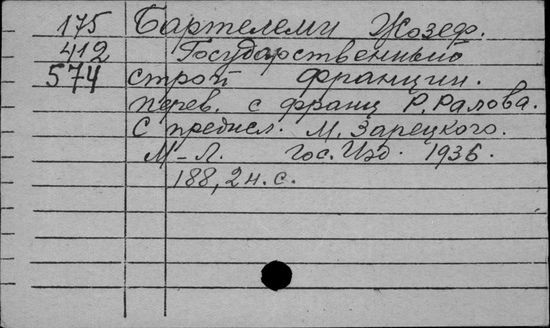 175 Бартелеми Жозеф.
412 Государственный
574 строй Франции.
перев. с франц Р. Ралова.
С предисл. М. Зарецкого.
М-Л. Гос. Изд. 1936.
188, 2 н. с.